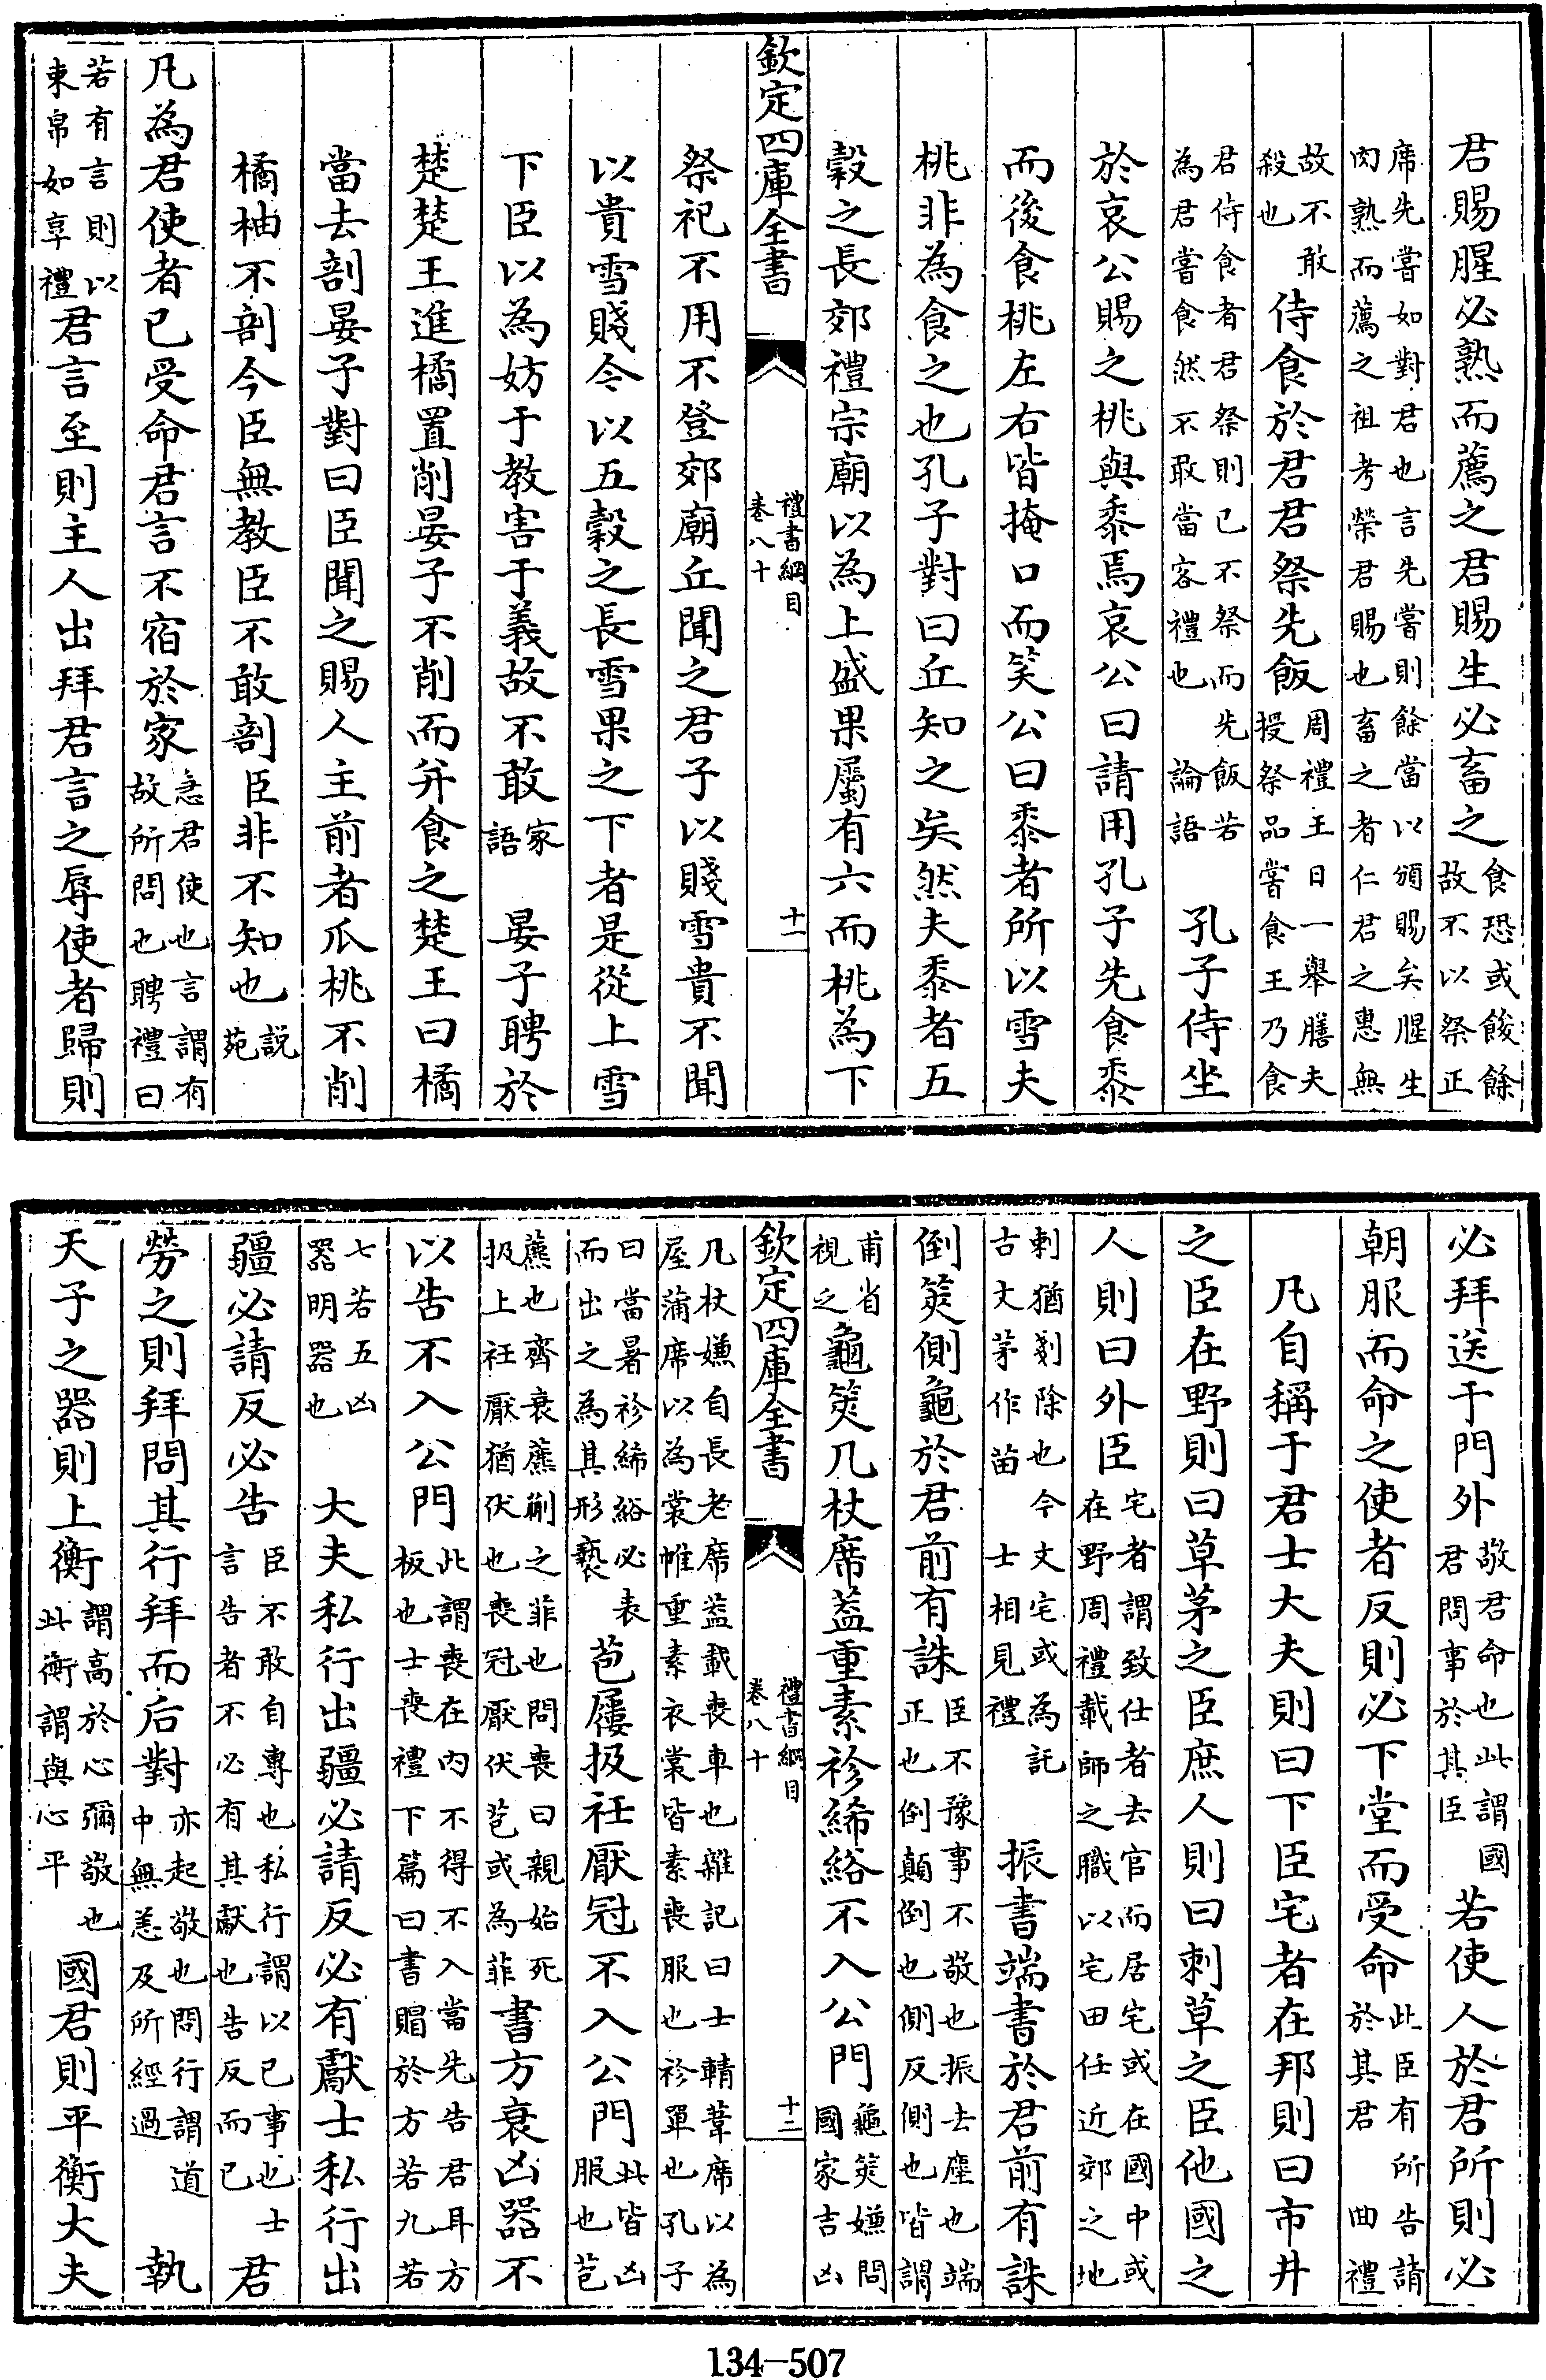 君賜腥必熟而薦之君賜生必畜之食恐或餕餘故不以祭正
席先嘗如對君也言先嘗則餘當以頒賜矣腥生肉熟而薦之祖考榮君賜也畜之者仁君之惠無
故不敢殺也侍食於君君祭先飯周禮王日一舉膳夫授祭品嘗食王乃食
君侍食者君祭則已不祭而先飯若為君嘗食然不敢當客禮也 論語 孔子侍坐
於哀公賜之桃與黍焉哀公曰請用孔子先食黍
而後食桃左右皆掩口而笑公曰黍者所以雪夫
桃非為食之也孔子對曰丘知之矣然夫黍者五
穀之長郊禮宗廟以為上盛果屬有六而桃為下
欽定四庫全書 禮書綱目 卷八十 十一
祭祀不用不登郊廟丘聞之君子以賤雪貴不聞
以貴雪賤今以五穀之長雪果之下者是從上雪
下臣以為妨于教害于義故不敢家語 晏子聘於
楚楚王進橘置削晏子不削而并食之楚王曰橘
當去剖晏子對曰臣聞之賜人主前者瓜桃不削
橘柚不剖今臣無教臣不敢剖臣非不知也說苑
凡為君使者已受命君言不宿於家急君使也言謂有故所問也聘禮曰
若有言則以束帛如享禮君言至則主人出拜君言之辱使者歸則
必拜送于門外敬君命也此謂國君問事於其臣 若使人於君所則必
朝服而命之使者反則必下堂而受命此臣有所告請於其君 曲禮
凡自稱于君士大夫則曰下臣宅者在邦則曰市井
之臣在野則曰草茅之臣庶人則曰刺草之臣他國之
人則曰外臣宅者謂致仕者去官而居宅或在國中或在野周禮載師之職以宅田任近郊之地
刺猶剗除也今文宅或為託古文茅作苗 士相見禮 振書端書於君前有誅
倒筴側龜於君前有誅臣不豫事不敬也振去塵也端正也倒顛倒也側反側也皆謂
甫省視之龜筴几杖席蓋重素袗絺綌不入公門龜筴嫌問國家吉凶
几杖嫌自長老席蓋載喪車也雜記曰士輤葦席以為屋蒲席以為裳帷重素衣裳皆素喪服也袗單也孔子
曰當暑袗絺綌必表而出之為其形褻苞屨扱衽厭冠不入公門此皆凶服也苞
欽定四庫全書 禮書綱目 卷八十 十二
藨也齊衰藨蒯之菲也問喪曰親始死扱上衽厭猶伏也喪冠厭伏苞或為菲書方衰凶器不
以告不入公門此謂喪在內不得不入當先告君耳方板也士喪禮下篇曰書賵於方若九若
七若五凶器明器也 大夫私行出疆必請反必有獻士私行出
疆必請反必告臣不敢自專也私行謂以已事也士言告者不必有其獻也告反而已 君
勞之則拜問其行拜而后對亦起敬也問行謂道中無恙及所經過 執
天子之器則上衡謂高於心彌敬也此衡謂與心平 國君則平衡大夫
134-507